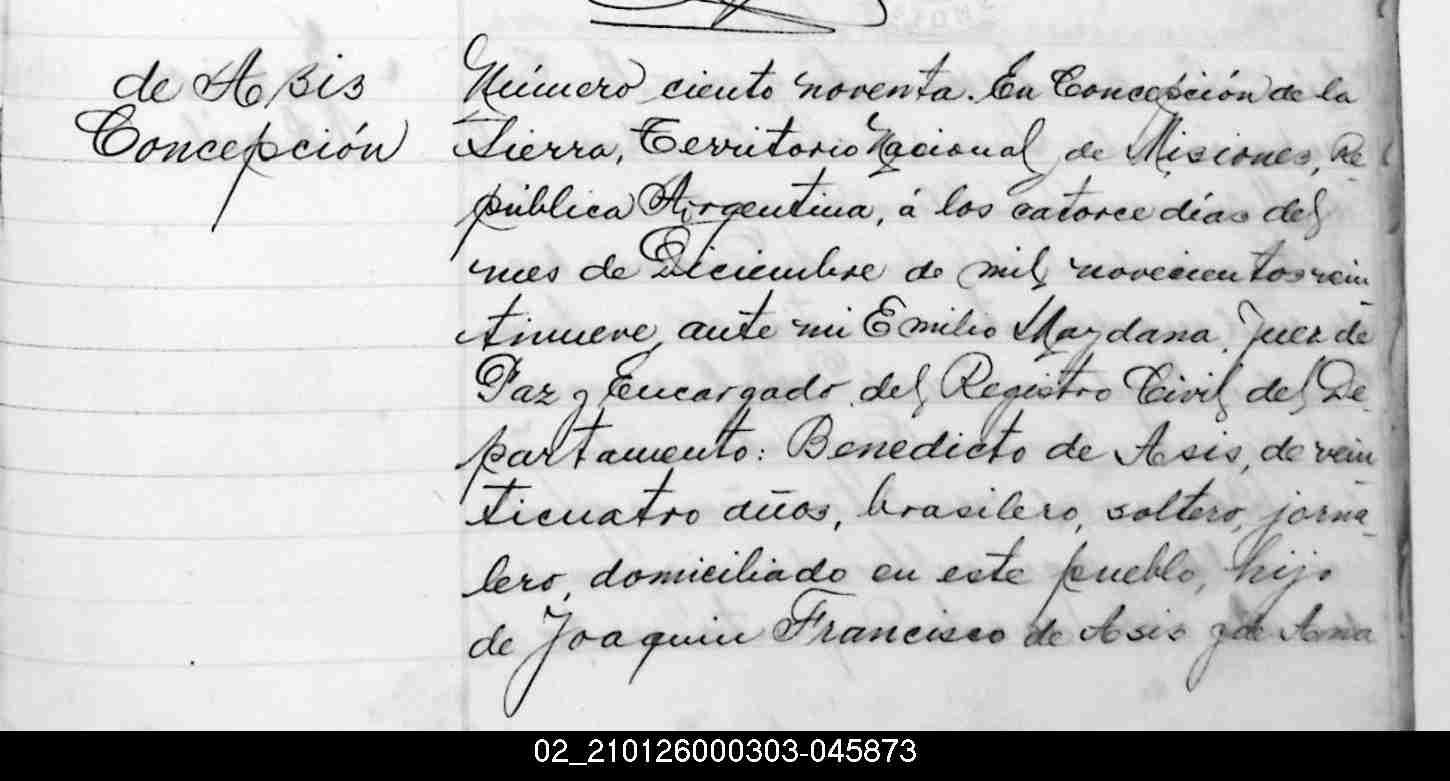 de Asis
Concepción
Número ciento noventa. En Concepción de la
Sierra, Territorio Nacional de Misiones, Re
pública Argentina, á los catorce días del
mes de Diciembre de mil novecientos vein
tinueve, ante mi Emilio Maydana, Juez de
Paz y Encargado del Registro Civil del De
partamento: Benedicto de Asis, de vein
ticuatro años, brasilero, soltero, jorna
lero, domiciliado en este pueblo, hijo
de Joaquin Francisco de Asis y de Ana
02_210126000303-045873